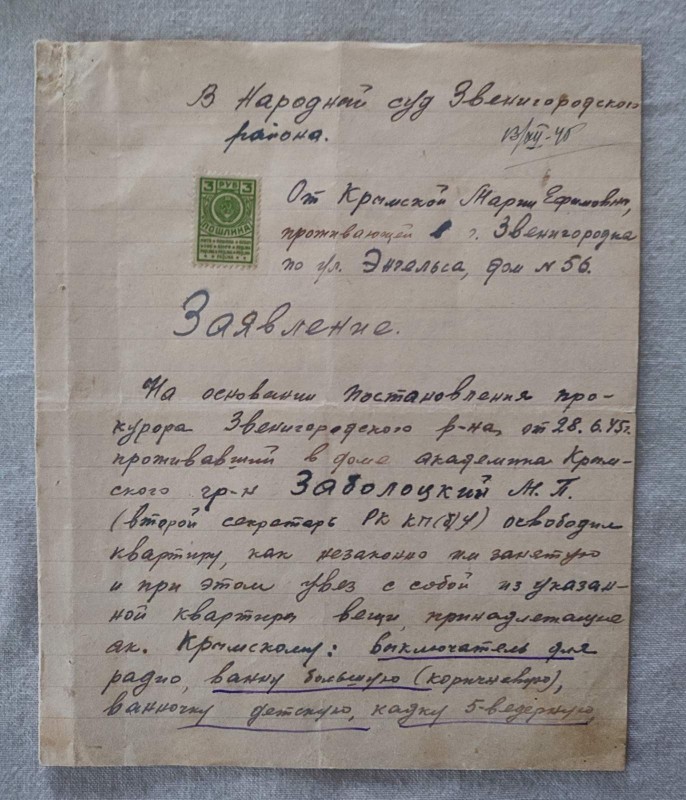 В Народной суд Звенигородского
района.
13/XII-45
3 РУБ 3
ПОШЛИНА
От Крымской Марии Ефимовны,
проживающей в г. Звенигородка
по ул. Энгельса, дом № 56.
Заявление.
На основании постановления про-
курора Звенигородского р-на, от 28.6.45г.
проживавший в доме академика Крым-
ского гр-н Заболоцкий М. П.
(второй секретарь РК КП(б)У) освободил
квартиру, как незаконно им занятую
и при этом увез с собой из указан-
ной квартиры вещи, принадлежащие
ак. Крымскому: выключатель для
радио, ванну большую (коричневую),
ванночку детскую, кадку 5-ведерную,